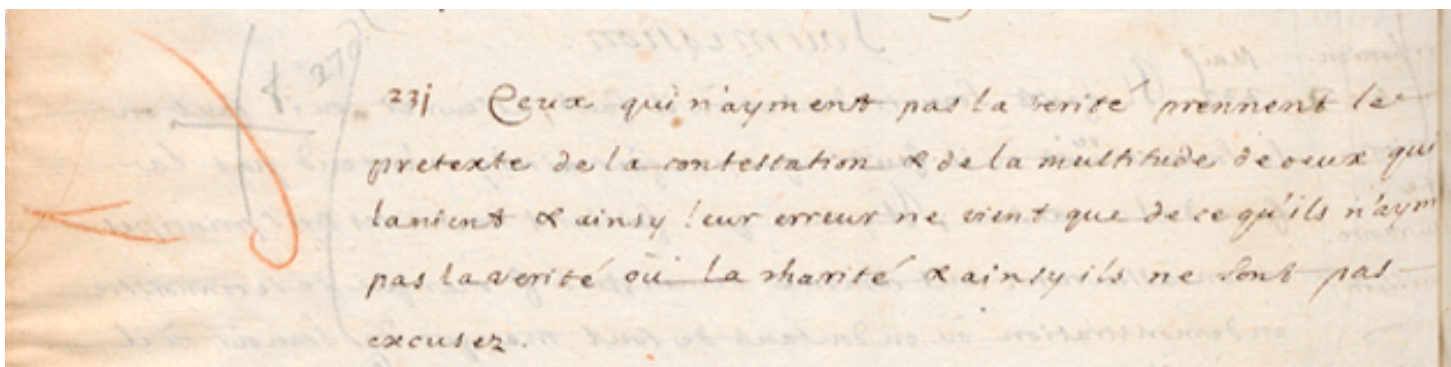 270
23j Ceux qui n'ayment pas la verite prennent le
pretexte de la contestation & de la multitude de ceux qui
la nient & ainsy leur erreur ne vient que de ce qu'ils n'aym
pas la verité ou la charité & ainsy ils ne sont pas
excusez.